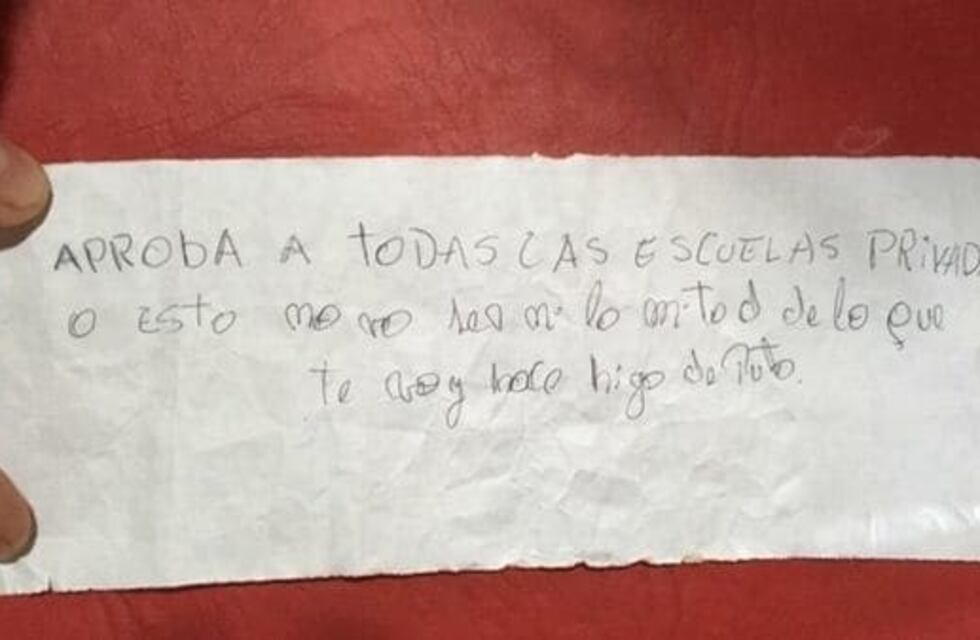 APROBA A TODAS LAS ESCUELAS PRIVAD
O ESTO no va ser ni la mitad de lo que
te voy hace higo de Puta.